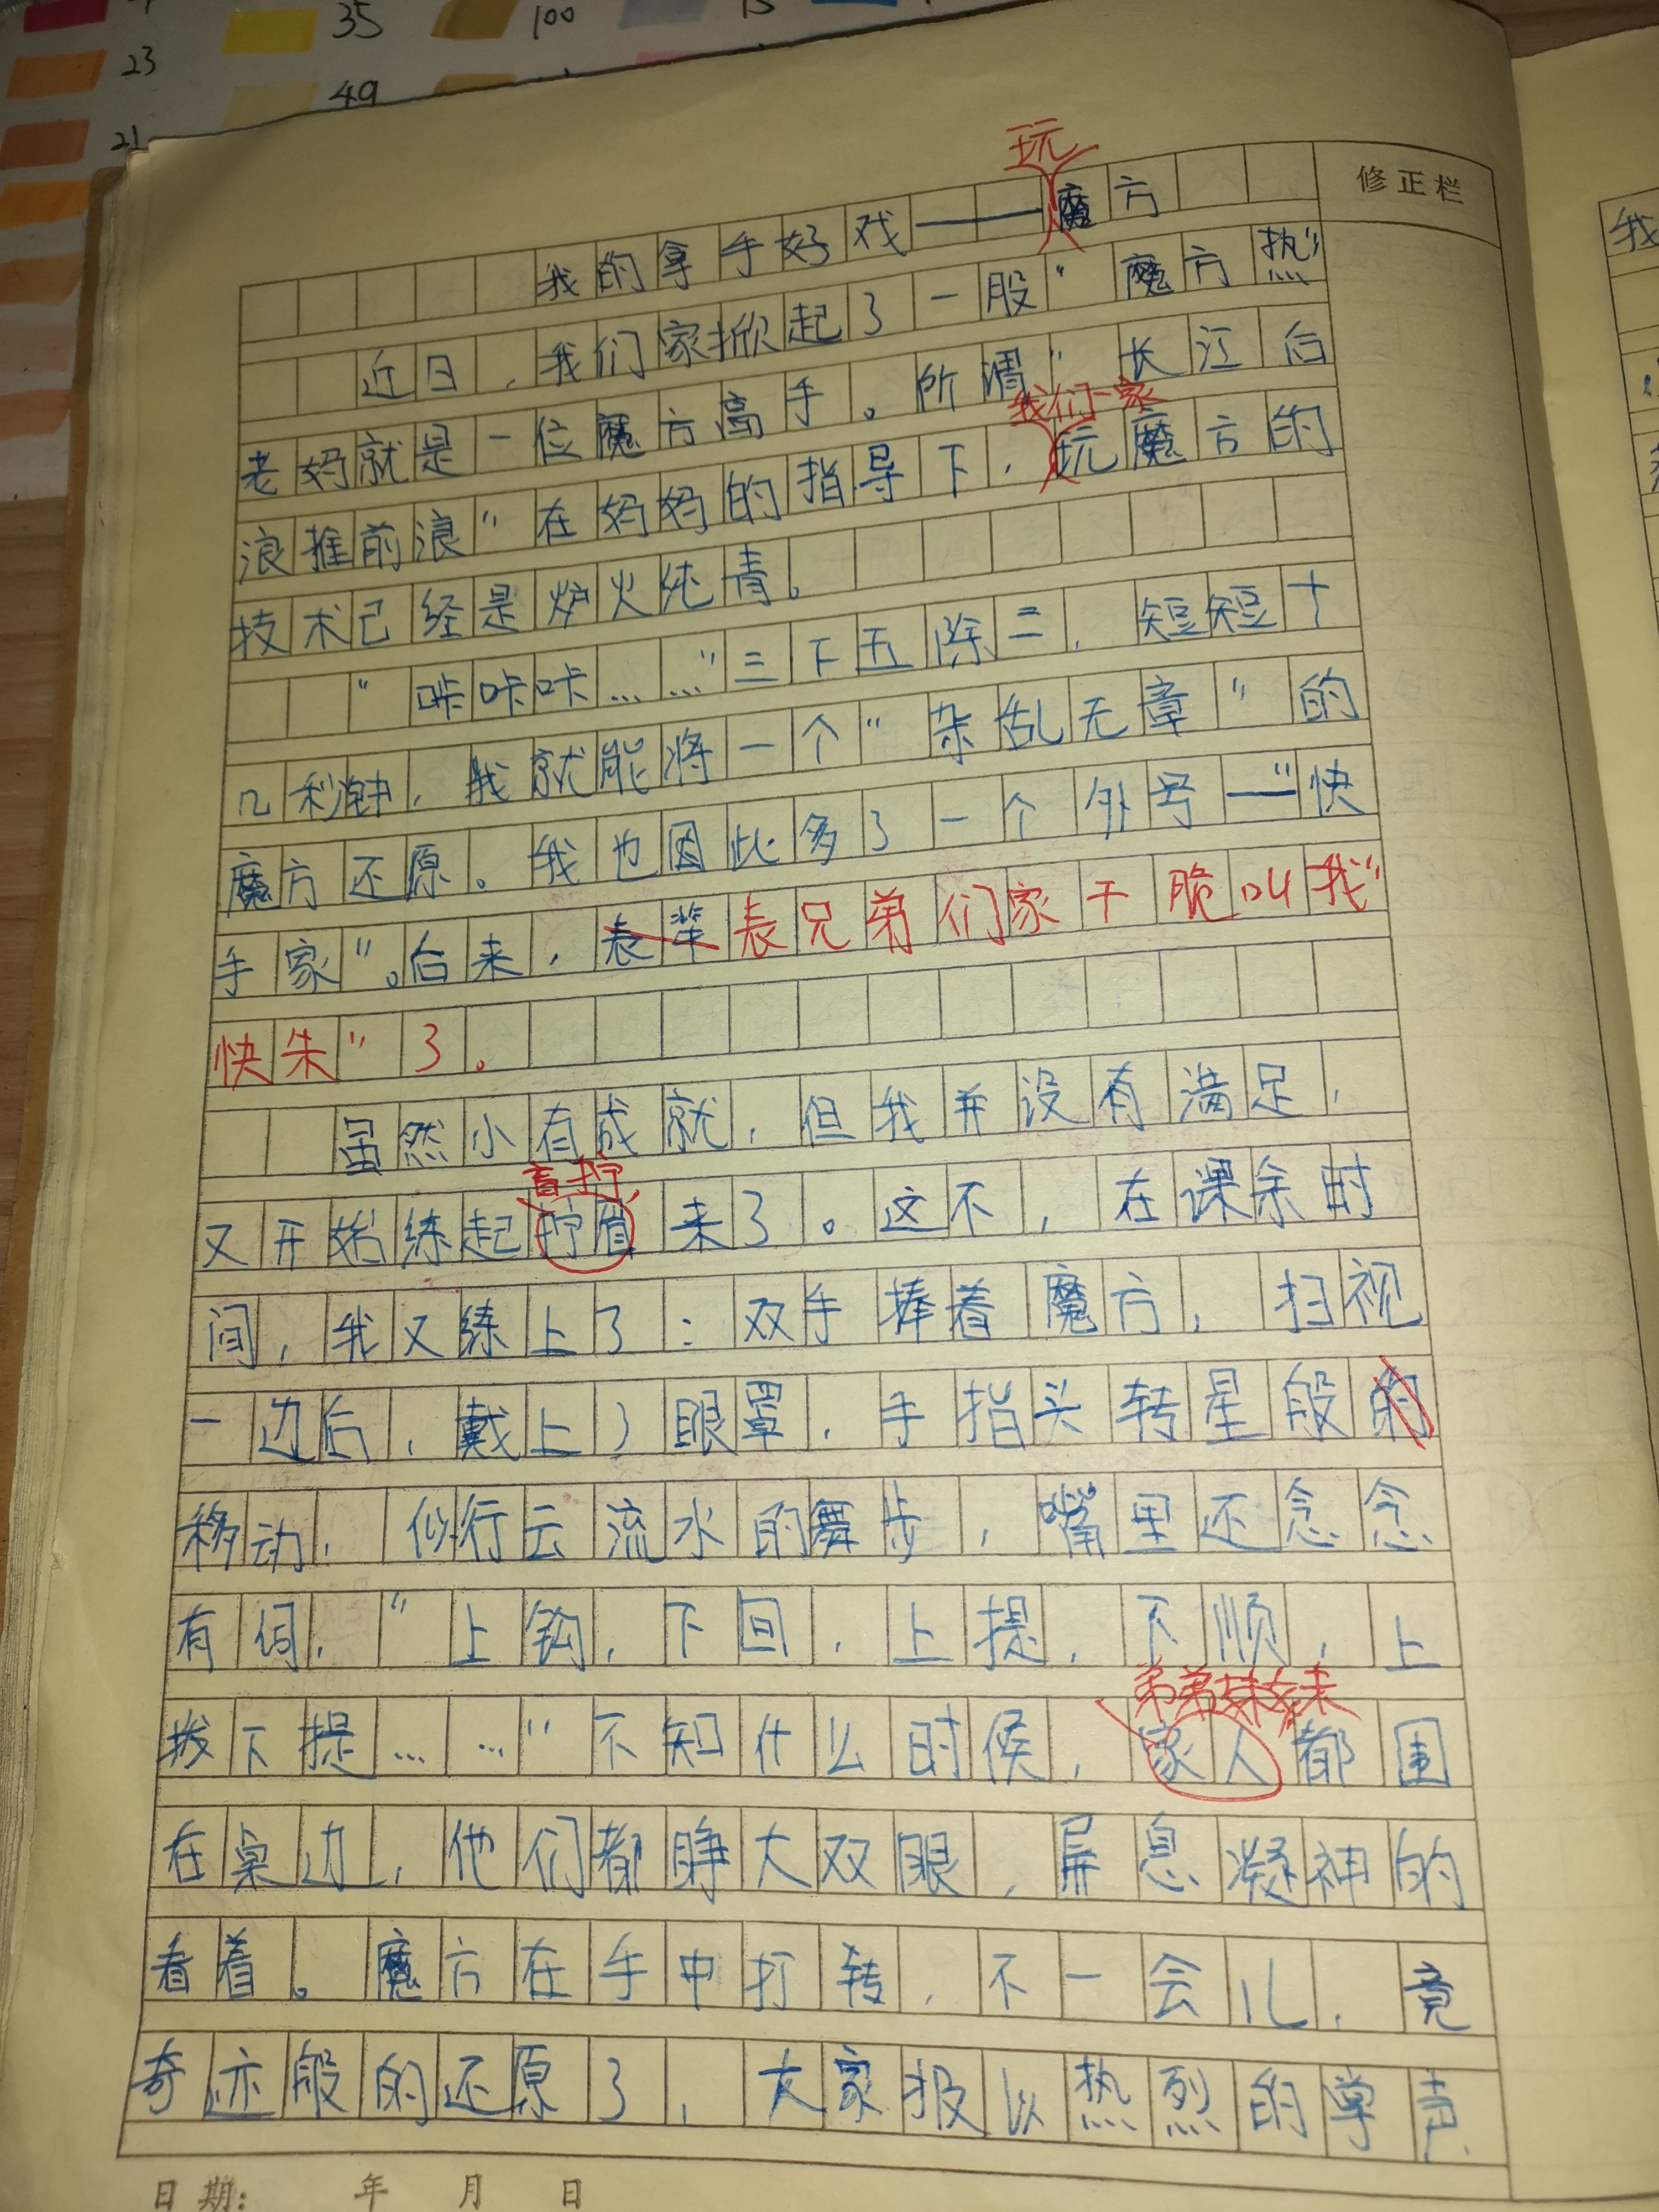 35
100
15
23
49
21
修正栏
玩
我的拿手好戏——魔方
近日,我们家掀起了一股"魔方热"
老妈就是一位魔方高手。所谓"长江后
我们一家
浪推前浪"在妈妈的指导下,玩魔方的
技术已经是炉火纯青。
"咔咔咔……"三下五除二,短短十
几秒钟,我就能将一个"杂乱无章"的
魔方还原。我也因此多了一个外号—"快
手家"。后来,表辈表兄弟们家干脆叫我"
快朱"了。
虽然小有成就,但我并没有满足,
盲拧
又开始练起拧盲来了。这不,在课余时
间,我又练上了:双手捧着魔方,扫视
一边后,戴上了眼罩,手指头转星般的
移动,似行云流水的舞步,嘴里还念念
有词,"上钩,下回,上提,下顺,上
弟弟妹妹
拨下提……"不知什么时候,家人都围
在桌边,他们都睁大双眼,屏息凝神的
看着。魔方在手中打转,不一会儿,竟
奇迹般的还原了,大家报以热烈的掌声
日期: 年 月 日
我